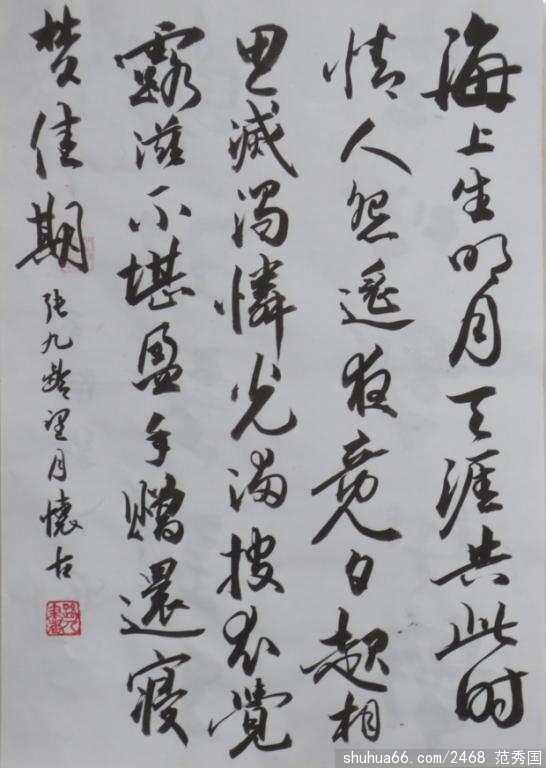 海上生明月天涯共此时
情人怨遥夜竟夕起相
思滅燭憐光满披衣覺
露滋不堪盈手贈還寝
梦佳期
张九齡望月懷古
shuhua66.com/2468 范秀国